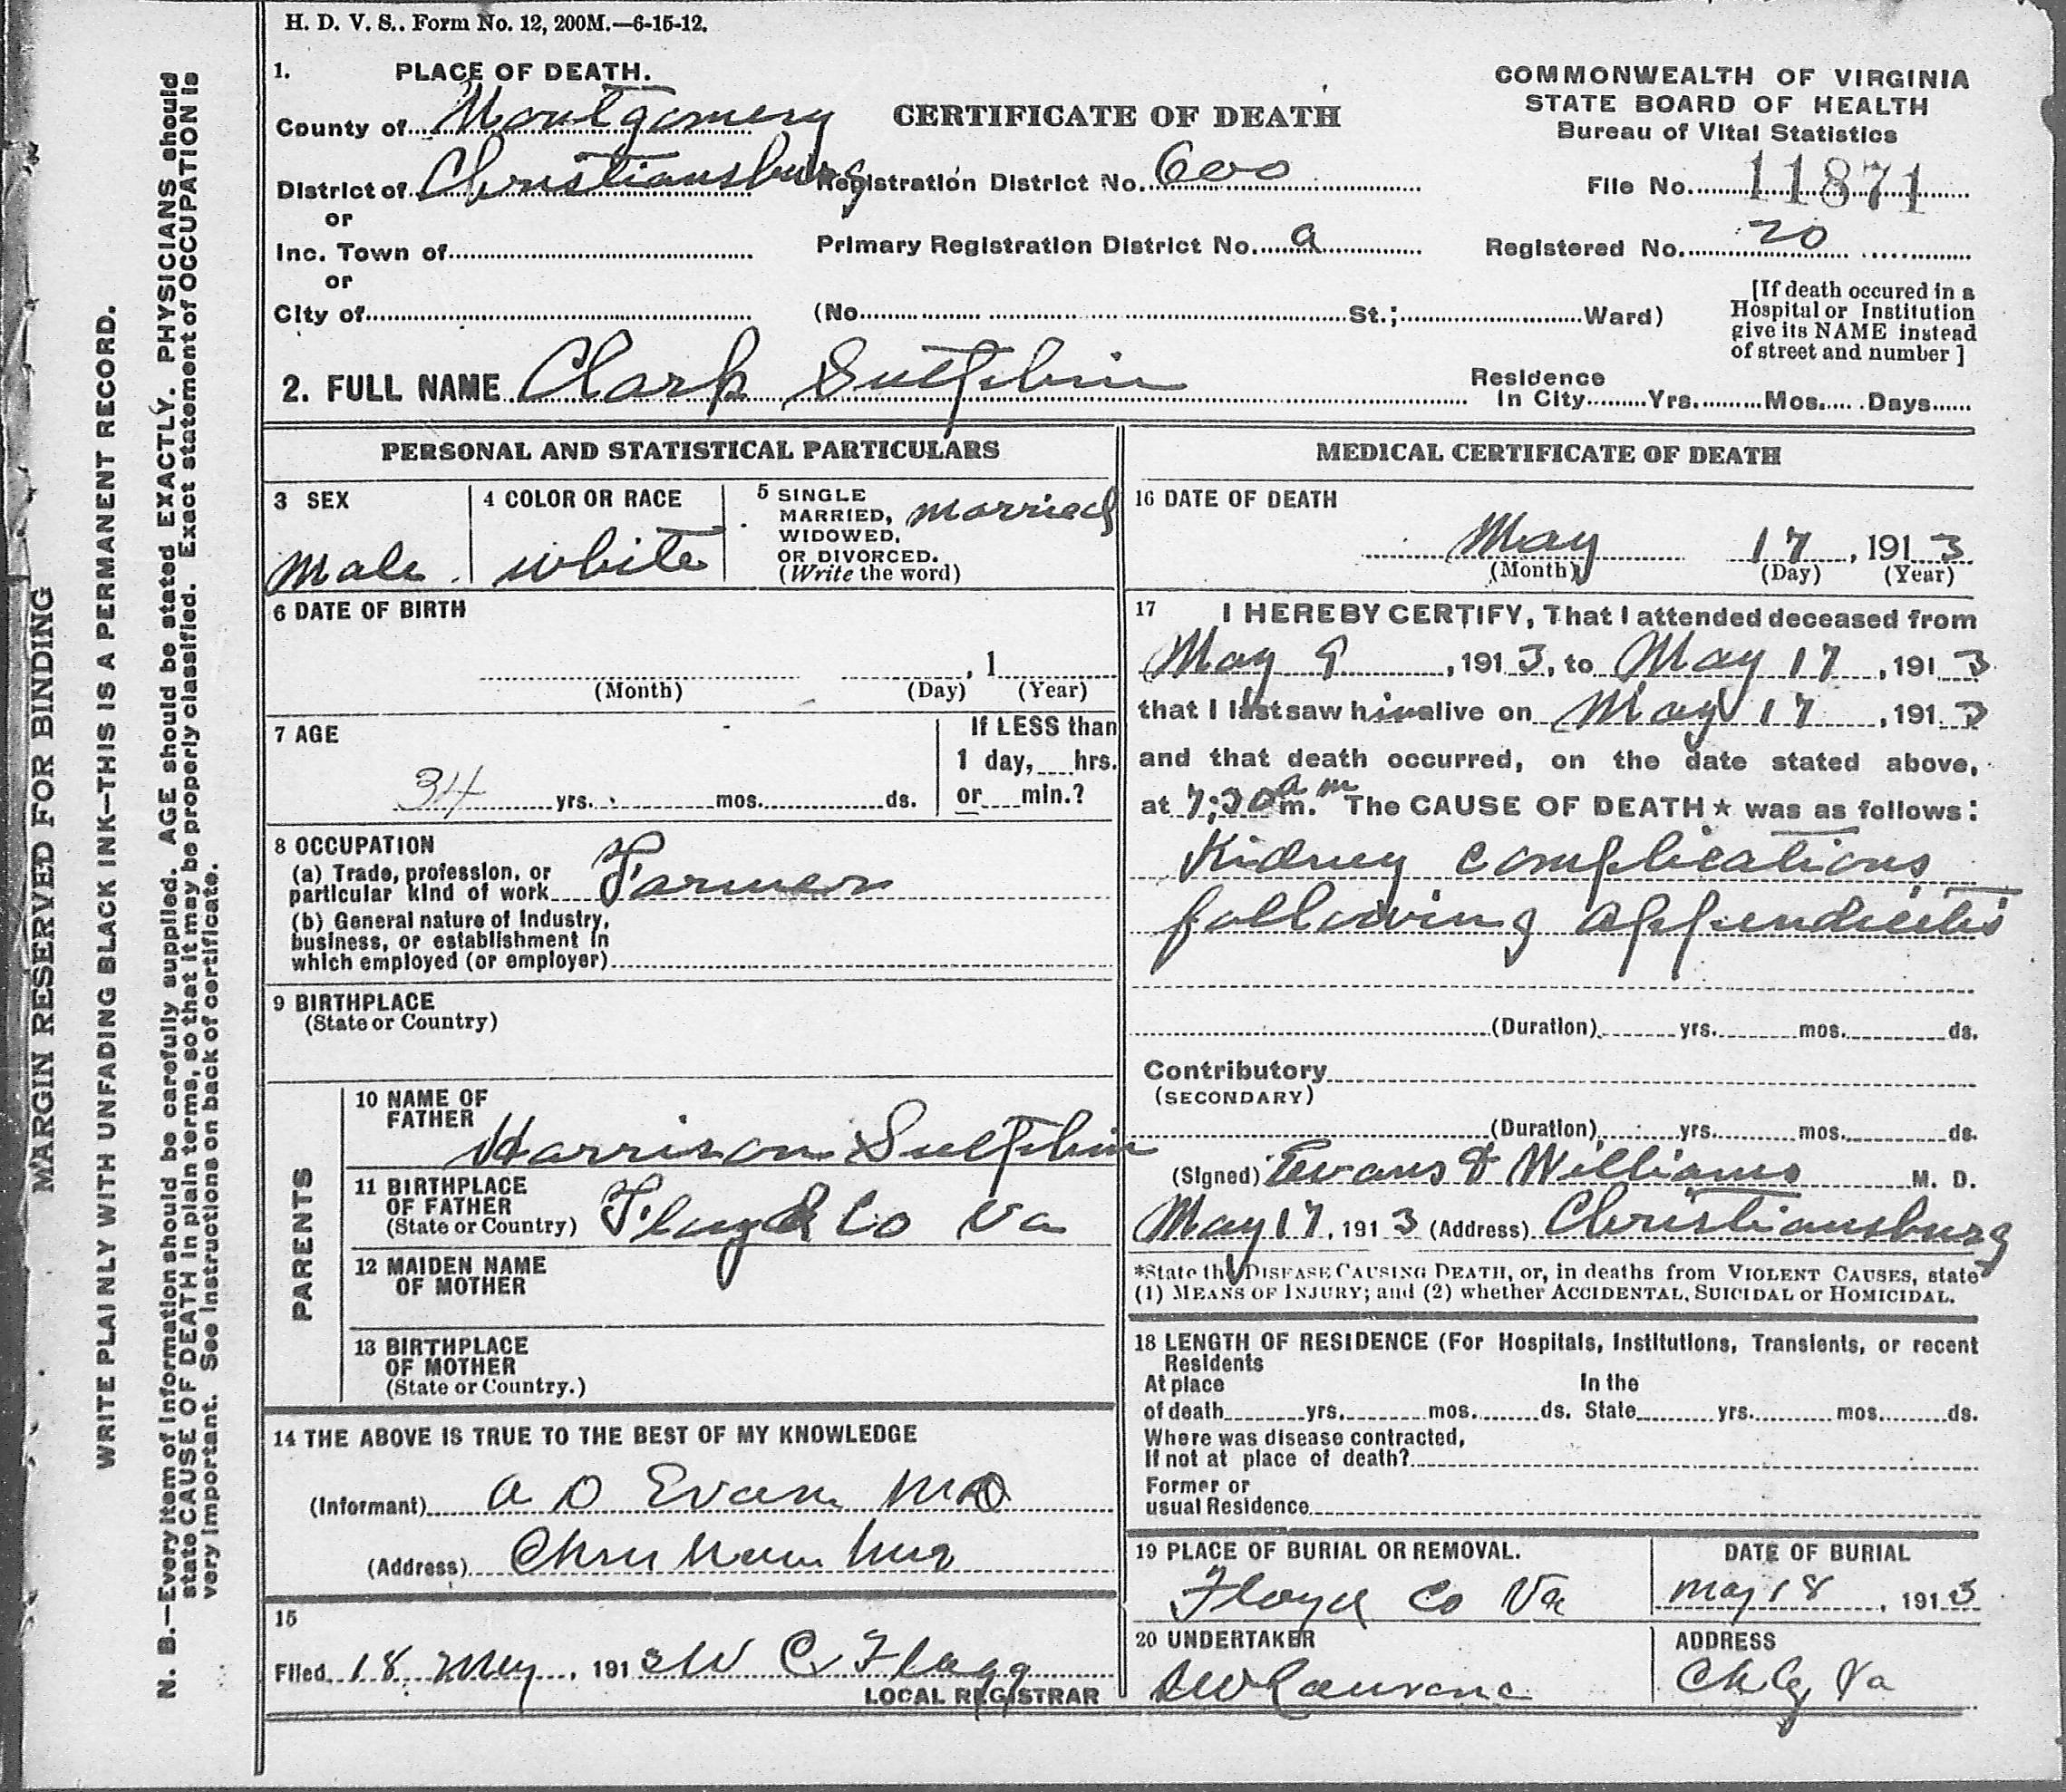 H. D. V. S.. Form No. 12, 200M.—6-15-12.
1. PLACE OF DEATH.
County of Montgomery
District of Christiansburg
or
Inc. Town of
or
City of
CERTIFICATE OF DEATH
Registration District No. 600
Primary Registration District No. a
(No. St.; Ward)
COMMONWEALTH OF VIRGINIA
STATE BOARD OF HEALTH
Bureau of Vital Statistics
File No. 11871
Registered No. 20
[If death occured in a
Hospital or Institution
give its NAME instead
of street and number ]
2. FULL NAME Clark Sutphin
Residence
In City Yrs. Mos. Days
PERSONAL AND STATISTICAL PARTICULARS
3 SEX
Male
4 COLOR OR RACE
white
5 SINGLE
MARRIED,
WIDOWED,
OR DIVORCED.
(Write the word)
married
6 DATE OF BIRTH
, 1
(Month) (Day) (Year)
7 AGE
34 yrs. mos. ds.
If LESS than
1 day, hrs.
or min.?
8 OCCUPATION
(a) Trade, profession, or
particular kind of work Farmer
(b) General nature of Industry,
business, or establishment in
which employed (or employer)
9 BIRTHPLACE
(State or Country)
PARENTS
10 NAME OF
FATHER
Harrison Sutphin
11 BIRTHPLACE
OF FATHER
(State or Country) Floyd Co Va
12 MAIDEN NAME
OF MOTHER
13 BIRTHPLACE
OF MOTHER
(State or Country.)
14 THE ABOVE IS TRUE TO THE BEST OF MY KNOWLEDGE
(Informant) A O Evans MD
(Address)
15
Filed 18 May, 1913 W C Flagg
LOCAL REGISTRAR
MEDICAL CERTIFICATE OF DEATH
16 DATE OF DEATH
May 17, 1913
(Month) (Day) (Year)
17 I HEREBY CERTIFY, That I attended deceased from
May 9, 1913, to May 17, 1913
that I last saw him alive on May 17, 1913
and that death occurred, on the date stated above,
at 7:30 a m m. The CAUSE OF DEATH * was as follows:
Kidney complications
following appendicitis
(Duration) yrs. mos. ds.
Contributory
(SECONDARY)
(Duration) yrs. mos. ds.
(Signed) Evans & Williams M. D.
May 17, 1913 (Address) Christiansburg
*State the DISEASE CAUSING DEATH, or, in deaths from VIOLENT CAUSES, state
(1) MEANS OF INJURY; and (2) whether ACCIDENTAL, SUICIDAL or HOMICIDAL.
18 LENGTH OF RESIDENCE (For Hospitals, Institutions, Transients, or recent
Residents
At place In the
of death yrs. mos. ds. State yrs. mos. ds.
Where was disease contracted,
If not at place of death?
Former or
usual Residence
19 PLACE OF BURIAL OR REMOVAL.
Floyd Co Va
DATE OF BURIAL
May 18, 1913
20 UNDERTAKER
ADDRESS
Chbg Va
MARGIN RESERVED FOR BINDING
WRITE PLAINLY WITH UNFADING BLACK INK—THIS IS A PERMANENT RECORD.
N. B.—Every item of information should be carefully supplied. AGE should be stated EXACTLY. PHYSICIANS should
state CAUSE OF DEATH in plain terms, so that it may be properly classified. Exact statement of OCCUPATION is
very important. See instructions on back of certificate.